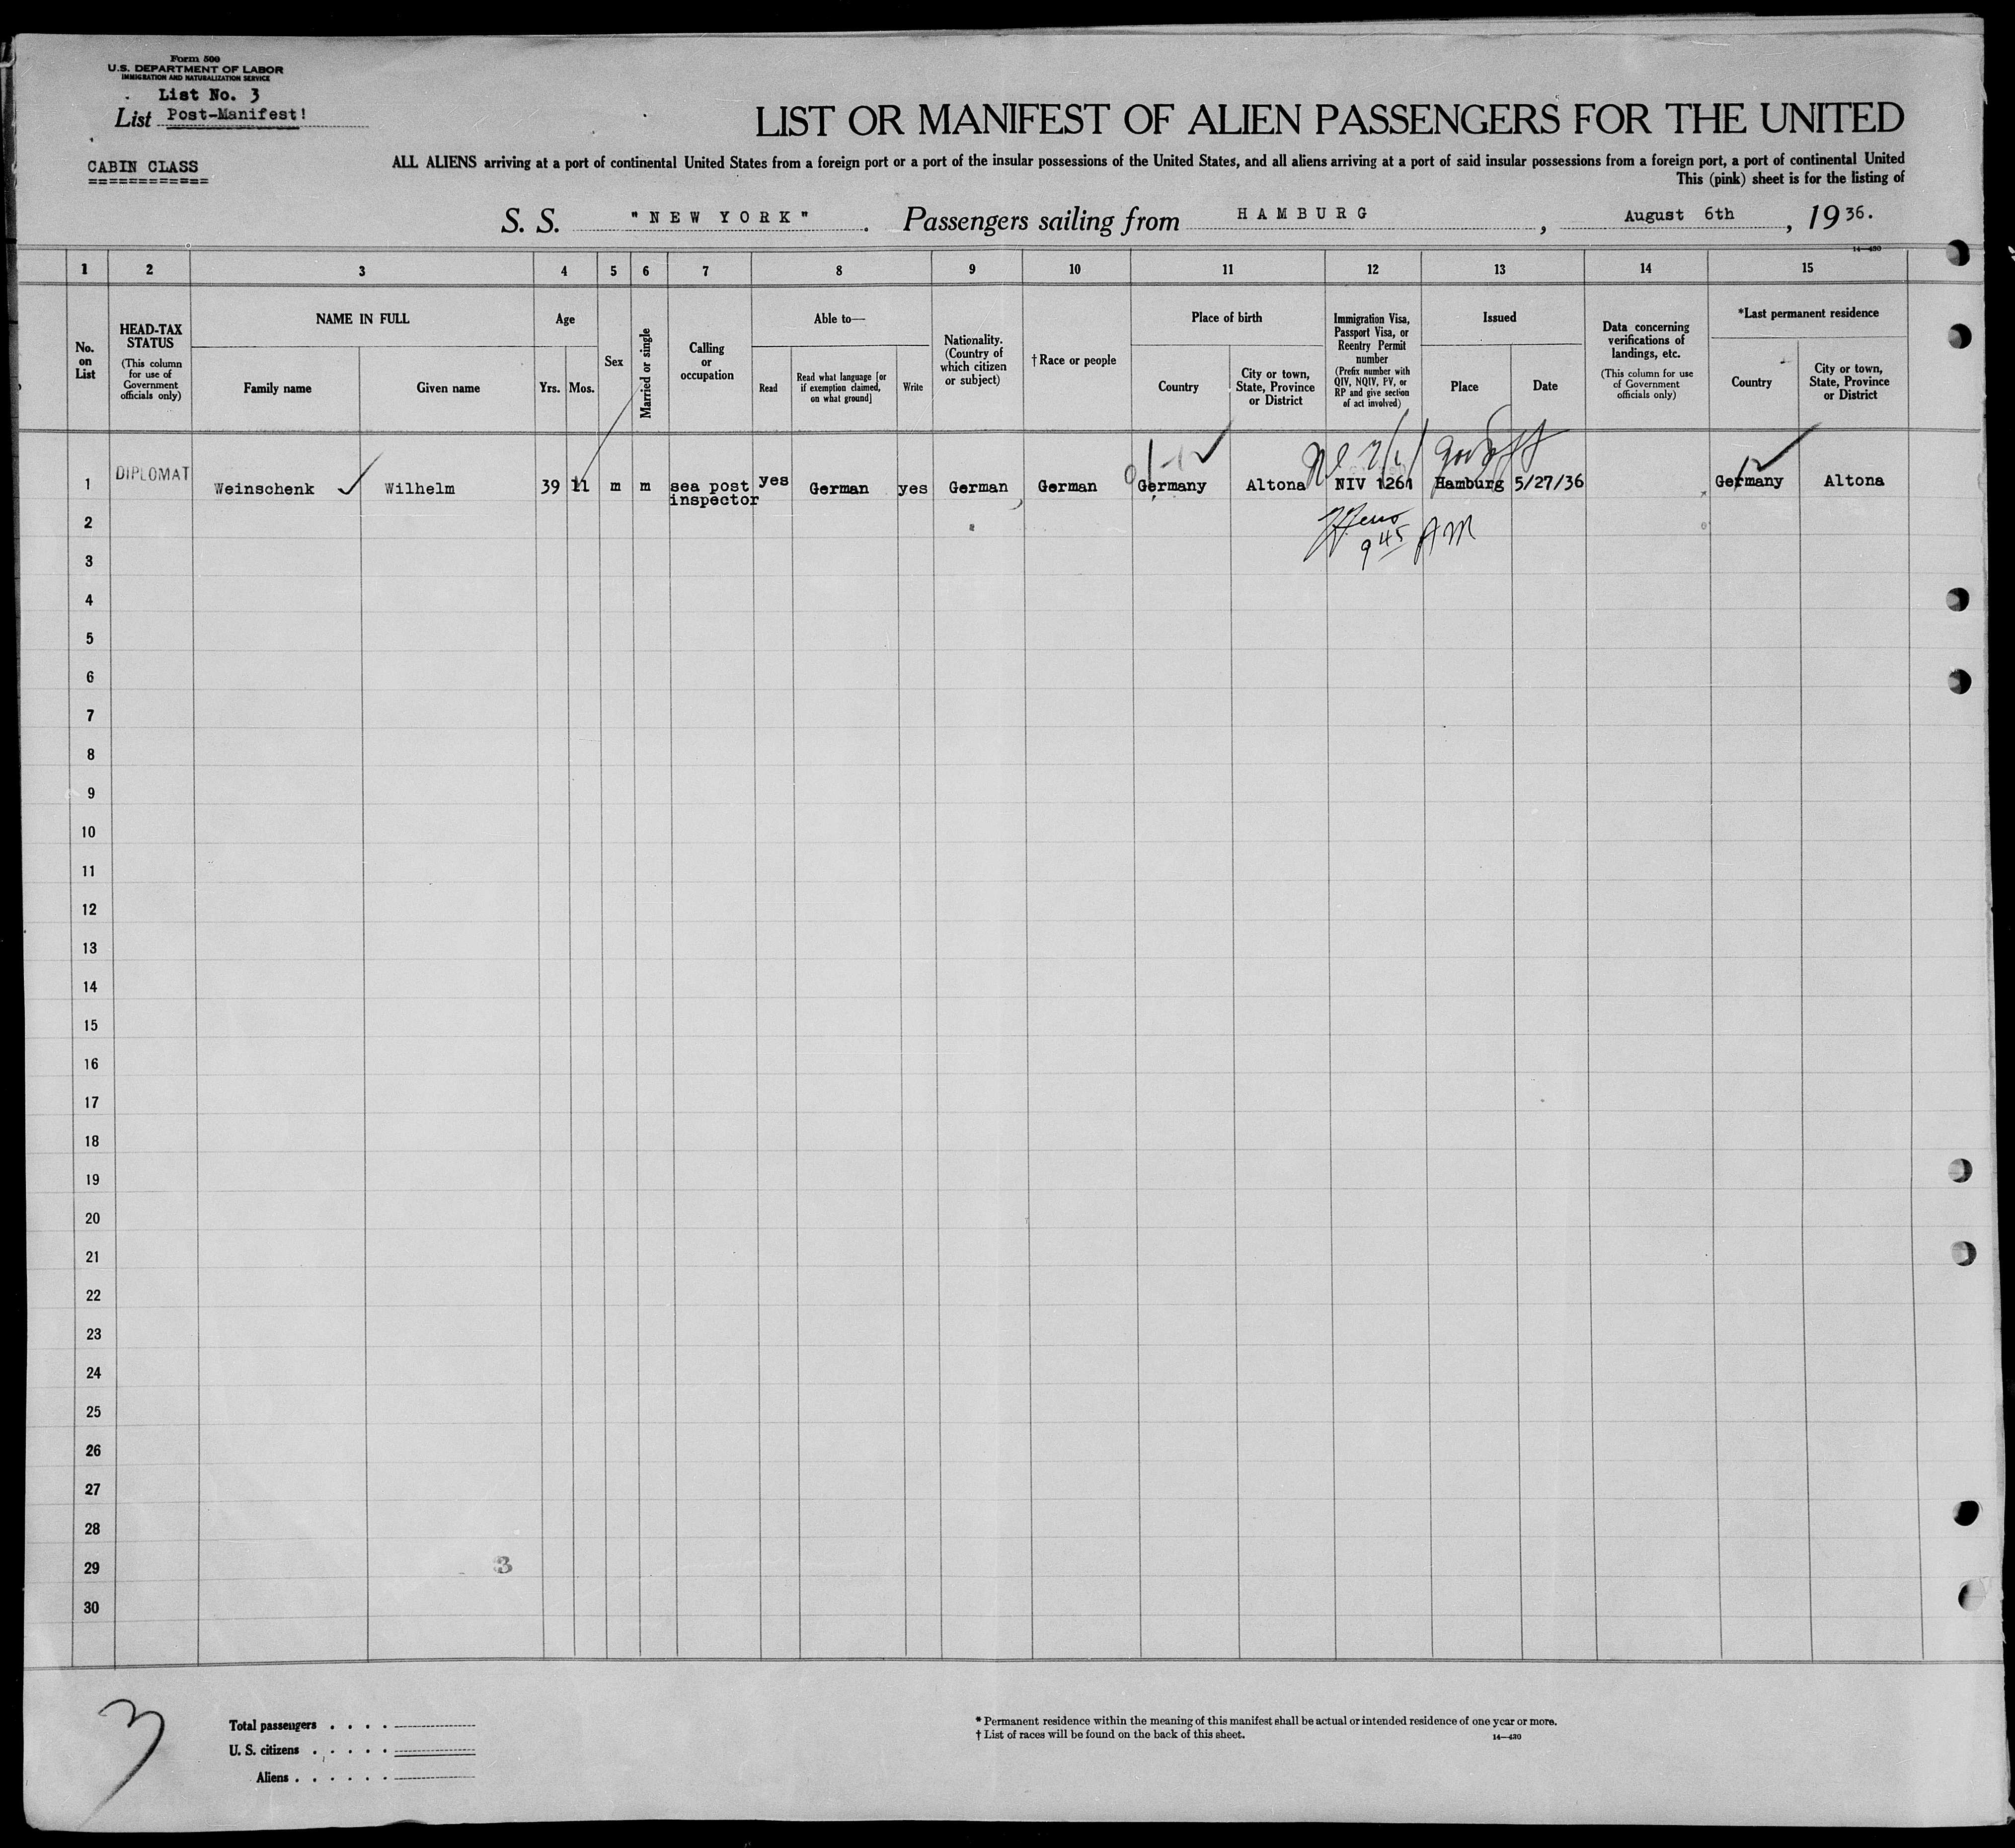 Form 500
U.S. DEPARTMENT OF LABOR
IMMIGRATION AND NATURALIZATION SERVICE
List No. 3
List Post-Manifest!
CABIN CLASS
LIST OR MANIFEST OF ALIEN PASSENGERS FOR THE UNITED
ALL ALIENS arriving at a port of continental United States from a foreign port or a port of the insular possessions of the United States, and all aliens arriving at a port of said insular possessions from a foreign port, a port of continental United
This (pink) sheet is for the listing of
S. S. "NEW YORK". Passengers sailing from HAMBURG, August 6th, 1936.
14—430
1 2 3 4 5 6 7 8 9 10 11 12 13 14 15
No. on List
HEAD-TAX STATUS
(This column for use of Government officials only)
NAME IN FULL
Family name
Given name
Age
Yrs. Mos.
Sex
Married or single
Calling or occupation
Able to—
Read
Read what language [or if exemption claimed, on what ground]
Write
Nationality. (Country of which citizen or subject)
†Race or people
Place of birth
Country
City or town, State, Province or District
Immigration Visa, Passport Visa, or Reentry Permit number
(Prefix number with QIV, NQIV, PV, or RP and give section of act involved)
Issued
Place
Date
Data concerning verifications of landings, etc.
(This column for use of Government officials only)
*Last permanent residence
Country
City or town, State, Province or District
1 DIPLOMAT Weinschenk Wilhelm 39 11 m m sea post inspector yes German yes German German Germany Altona NIV 1261 Hamburg 5/27/36 Germany Altona
9 45 AM
2
3
4
5
6
7
8
9
10
11
12
13
14
15
16
17
18
19
20
21
22
23
24
25
26
27
28
29
3
30
3
Total passengers
U. S. citizens
Aliens
* Permanent residence within the meaning of this manifest shall be actual or intended residence of one year or more.
† List of races will be found on the back of this sheet.
14—430